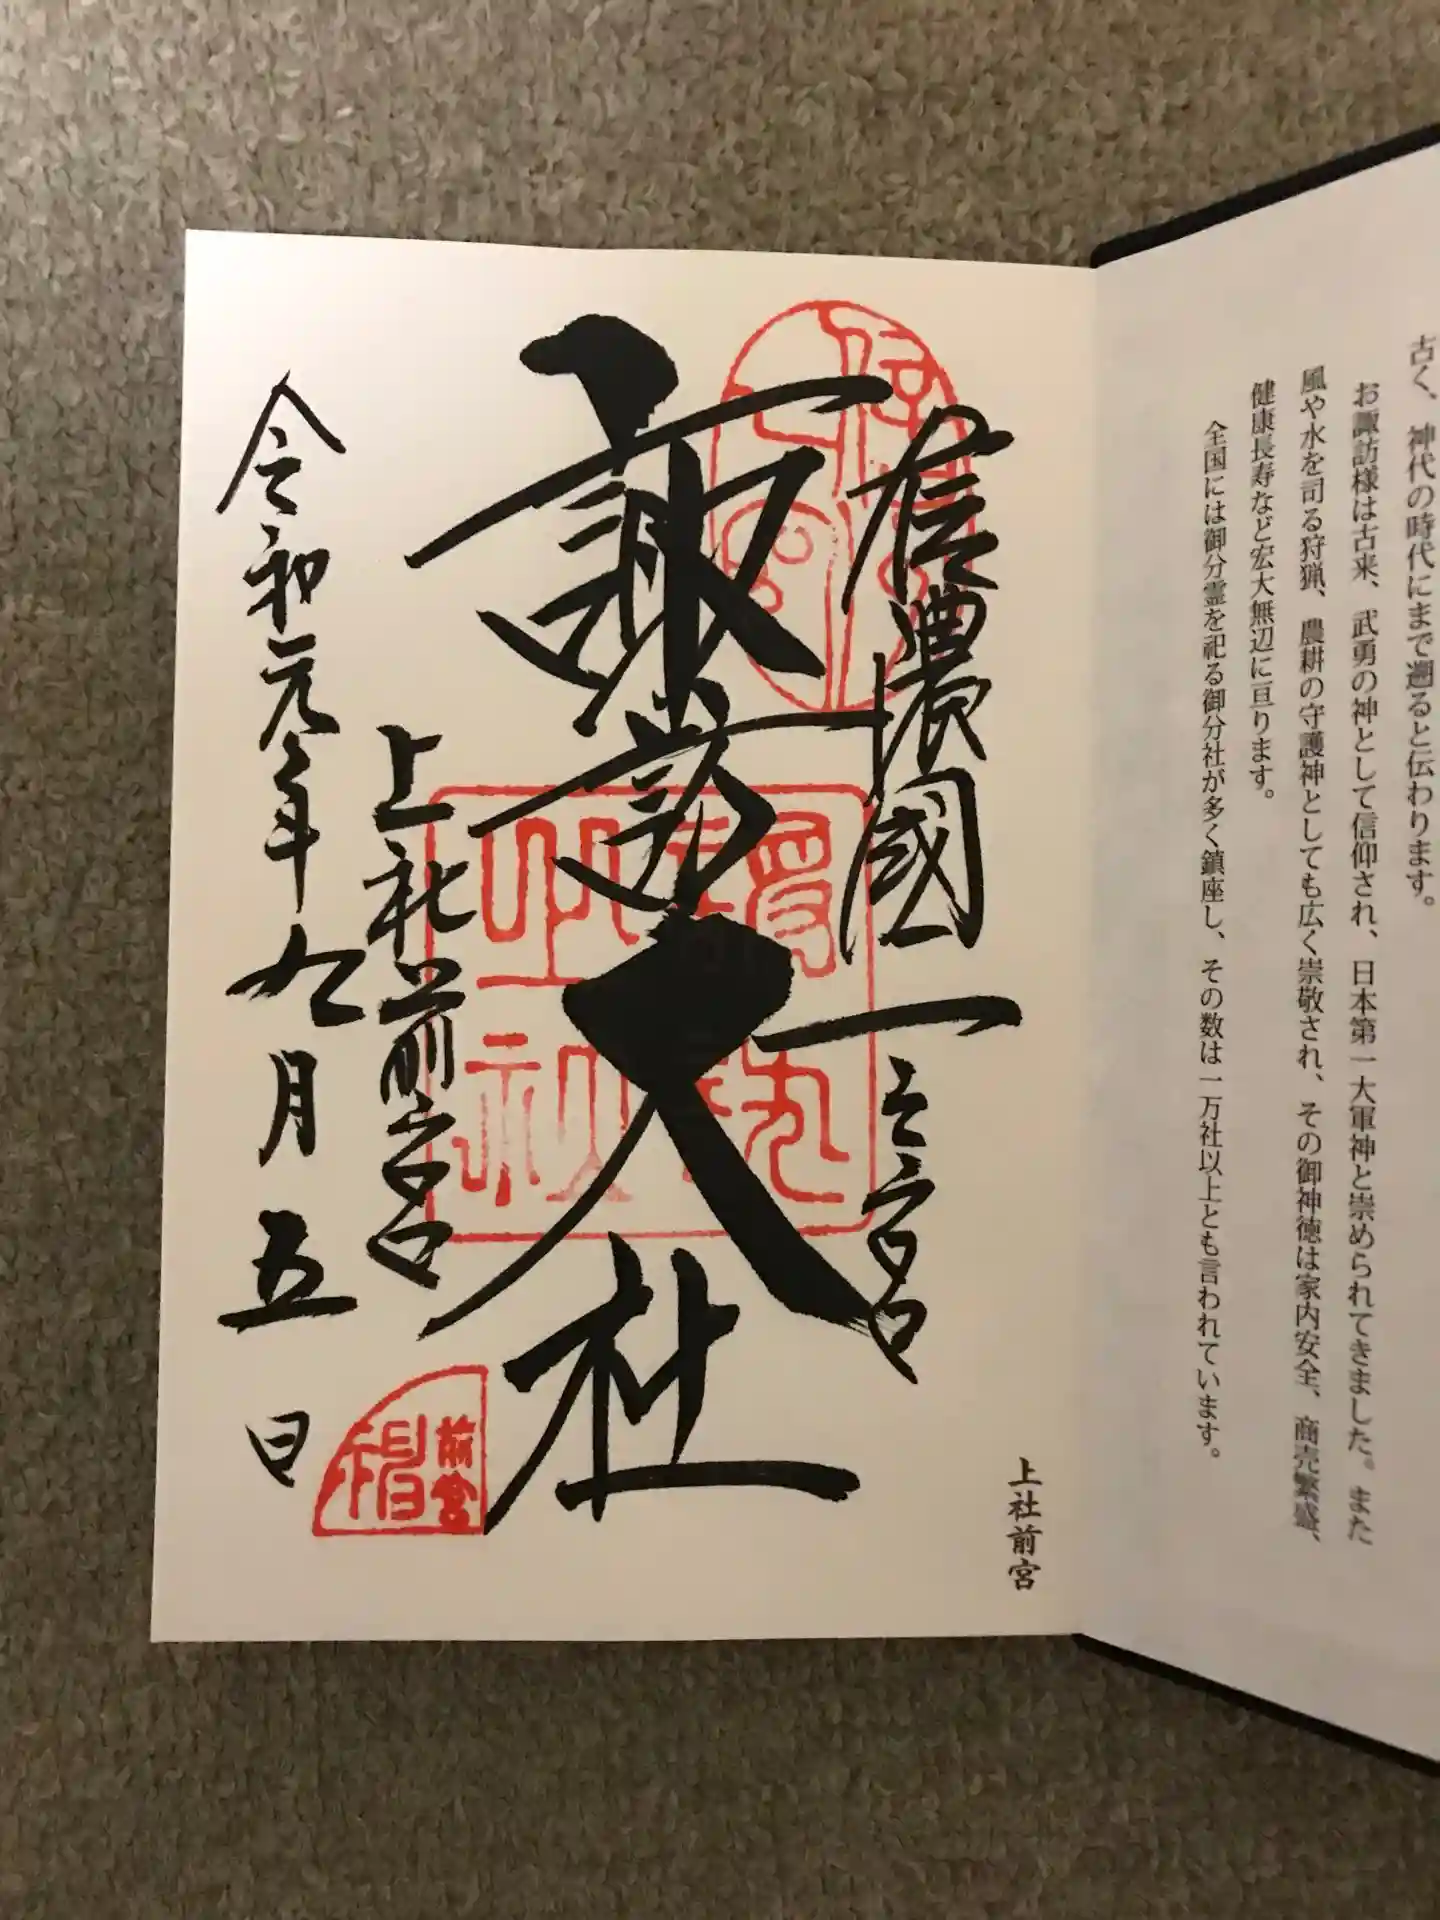 古く、神代の時代にまで遡ると伝わります。
お諏訪様は古来、武勇の神として信仰され、日本第一大軍神と崇められてきました。また
風や水を司る狩猟、農耕の守護神としても広く崇敬され、その御神徳は家内安全、商売繁盛、
健康長寿など宏大無辺に亘ります。
全国には御分霊を祀る御分社が多く鎮座し、その数は一万社以上とも言われています。
上社前宮
信濃國一之宮
諏訪大社
上社前宮
令和元年九月五日
前宮